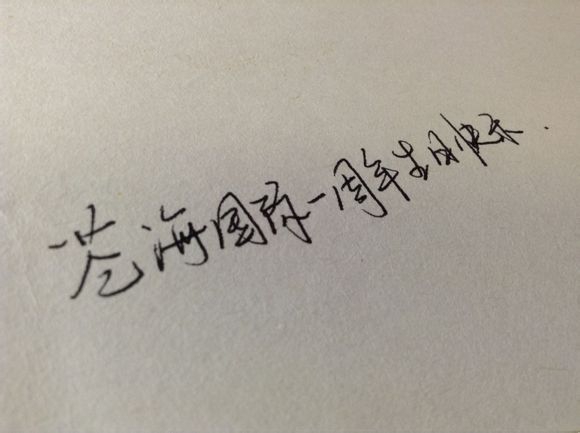 苍海国际一周年生日快乐.